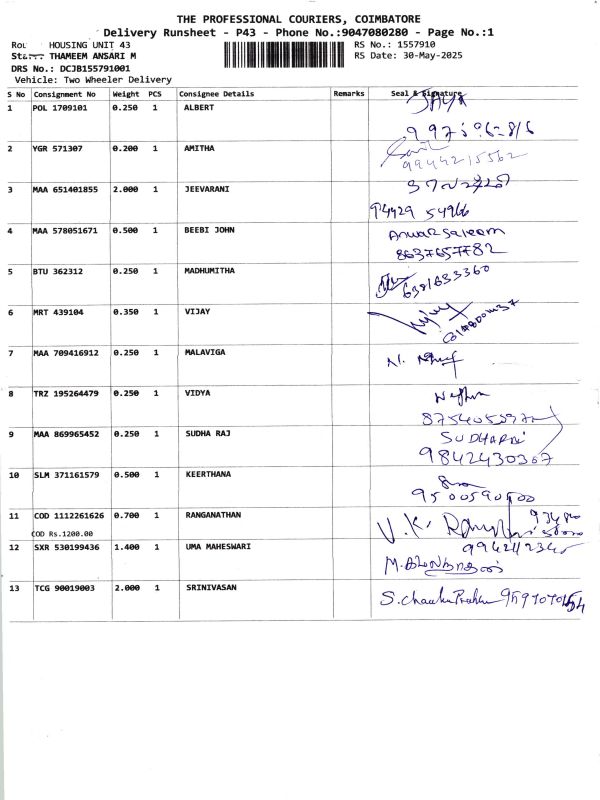 THE PROFESSIONAL COURIERS, COIMBATORE
Delivery Runsheet - P43 - Phone No.:9047080280 - Page No.:1
HOUSING UNIT 43
RS No.: 1557910
THAMEEM ANSARI M
RS Date: 30-May-2025
DRS No.: DCJB155791001
Vehicle: Two Wheeler Delivery
S No Consignment No Weight PCS Consignee Details Remarks Seal & Signature
1 POL 1709101 0.250 1 ALBERT
2 YGR 571307 0.200 1 AMITHA
9944215562
3 MAA 651401855 2.000 1 JEEVARANI
4 MAA 578051671 0.500 1 BEEBI JOHN Anwar Saleem
8637657782
5 BTU 362312 0.250 1 MADHUMITHA 6381633360
6 MRT 439104 0.350 1 VIJAY
7 MAA 709416912 0.250 1 MALAVIGA
8 TRZ 195264479 0.250 1 VIDYA
9 MAA 869965452 0.250 1 SUDHA RAJ
9842430367
10 SLM 371161579 0.500 1 KEERTHANA
9500590500
11 COD 1112261626 0.700 1 RANGANATHAN V.K.
COD Rs.1200.00
12 SXR 530199436 1.400 1 UMA MAHESWARI
13 TCG 90019003 2.000 1 SRINIVASAN